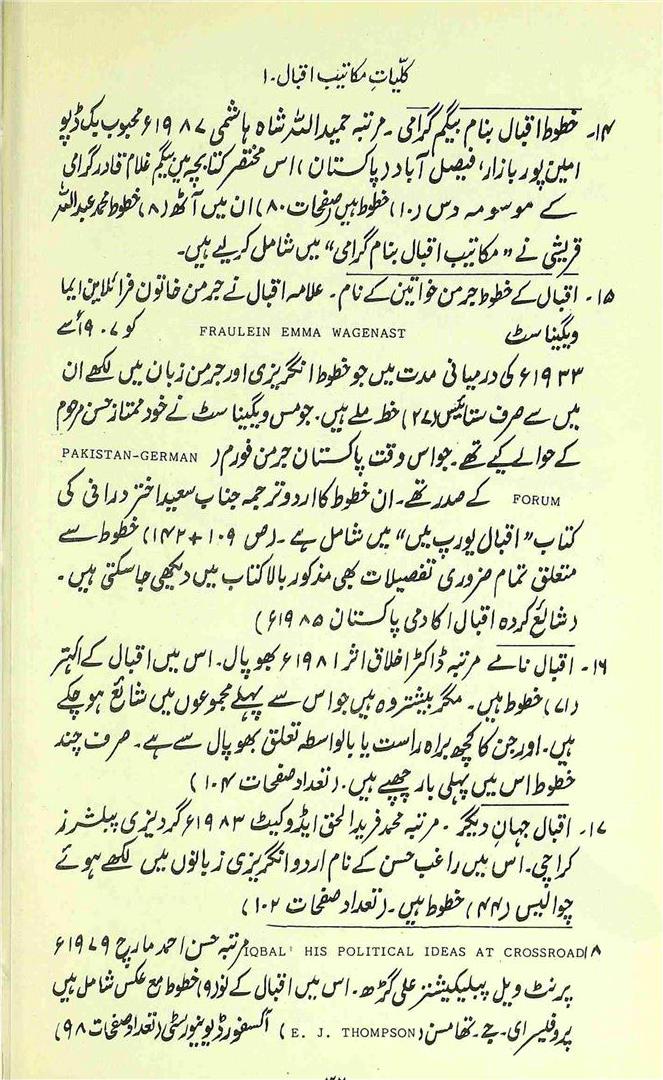 کلّیاتِ مکاتیب اقبال۔۱
۱۴۔ خطوط اقبال بنام بیگم گرامی ۔ مرتبہ حمید اللہ شاہ ہاشمی ۱۹۸۷ء محبوب بک ڈپو
امین پور بازار، فیصل آباد (پاکستان) اس مختصر کتابچہ میں بیگم غلام قادر گرامی
کے موسومہ دس (۱۰) خطوط ہیں (صفحات ۸۰) ان میں آٹھ (۸) خطوط محمد عبد اللہ
قریشی نے "مکاتیب اقبال بنام گرامی" میں شامل کر لیے ہیں۔
۱۵۔ اقبال کے خطوط جرمن خواتین کے نام ۔ علامہ اقبال نے جرمن خاتون فرائلاین ایما
ویگیناسٹ FRAULEIN EMMA WAGENAST کو ۱۹۰۷ء سے
۱۹۳۳ء کی درمیانی مدت میں جو خطوط انگریزی اور جرمن زبان میں لکھے ان
میں سے صرف ستائیس (۲۷) خط ملے ہیں۔ جو مس ویگیناسٹ نے خود ممتاز حسن مرحوم
کے حوالے کیے تھے۔ جو اس وقت پاکستان جرمن فورم (PAKISTAN-GERMAN
FORUM کے صدر تھے۔ ان خطوط کا اردو ترجمہ جناب سعید اختر درانی کی
کتاب "اقبال یورپ میں" میں شامل ہے۔ (ص ۱۰۹ + ۱۴۲) خطوط سے
متعلق تمام ضروری تفصیلات بھی مذکور بالا کتاب میں دیکھی جا سکتی ہیں۔
(شائع کردہ اقبال اکادمی پاکستان ۱۹۸۵ء)
۱۶۔ اقبال نامے مرتبہ ڈاکٹر اخلاق اثر ۱۹۸۱ء بھوپال۔ اس میں اقبال کے اکہتر
(۷۱) خطوط ہیں۔ مگر بیشتر وہ ہیں جو اس سے پہلے مجموعوں میں شائع ہو چکے
ہیں۔ اور جن کا کچھ براہ راست یا بالواسطہ تعلق بھوپال سے ہے۔ صرف چند
خطوط اس میں پہلی بار چھپے ہیں۔ (تعداد صفحات ۱۰۴)
۱۷۔ اقبال جہانِ دیگر ۔ مرتبہ محمد فرید الحق ایڈوکیٹ ۱۹۸۳ء گردیزی پبلشرز
کراچی۔ اس میں راغب حسن کے نام اردو انگریزی زبانوں میں لکھے ہوئے
چوالیس (۴۴) خطوط ہیں۔ (تعداد صفحات ۱۰۲)
۱۸ IQBAL' HIS POLITICAL IDEAS AT CROSSROAD مرتبہ حسن احمد مارچ ۱۹۷۹ء
پرنٹ ویل پبلیکیشنز علی گڑھ۔ اس میں اقبال کے نو (۹) خطوط مع عکس شامل ہیں
پروفیسر ای۔ جے۔ تھامسن (E. J. THOMPSON) آکسفورڈ یونیورسٹی (تعداد صفحات ۹۸)